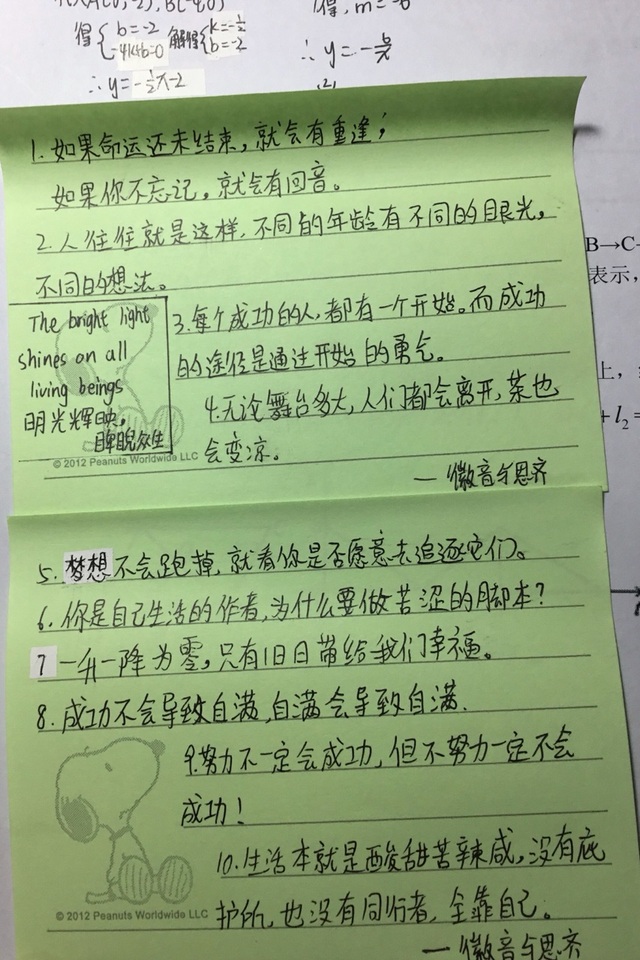 得{b=-2
-4k+b=0 解得{k=-1/2
b=-2
∴y=-1/2x-2
∴y=-6/x
1.如果命运还未结束，就会有重逢；
如果你不忘记，就会有回音。
2.人往往就是这样，不同的年龄有不同的眼光，
不同的想法。
The bright light
shines on all
living beings
明光辉映，
睥睨众生
© 2012 Peanuts Worldwide LLC
3.每个成功的人，都有一个开始。而成功
的途径是通过开始的勇气。
4.无论舞台多大，人们都会离开，茶也
会变凉。
——徽音与思齐
B→C
表示，
上，
+l₂=
5.梦想不会跑掉，就看你是否愿意去追逐它们。
6.你是自己生活的作者，为什么要做苦涩的脚本？
7一升一降为零，只有旧日带给我们幸福。
8.成功不会导致自满，自满会导致自满.
9.努力不一定会成功，但不努力一定不会
成功！
10.生活本就是酸甜苦辣咸，没有庇
护所，也没有同行者，全靠自己。
© 2012 Peanuts Worldwide LLC
——徽音与思齐